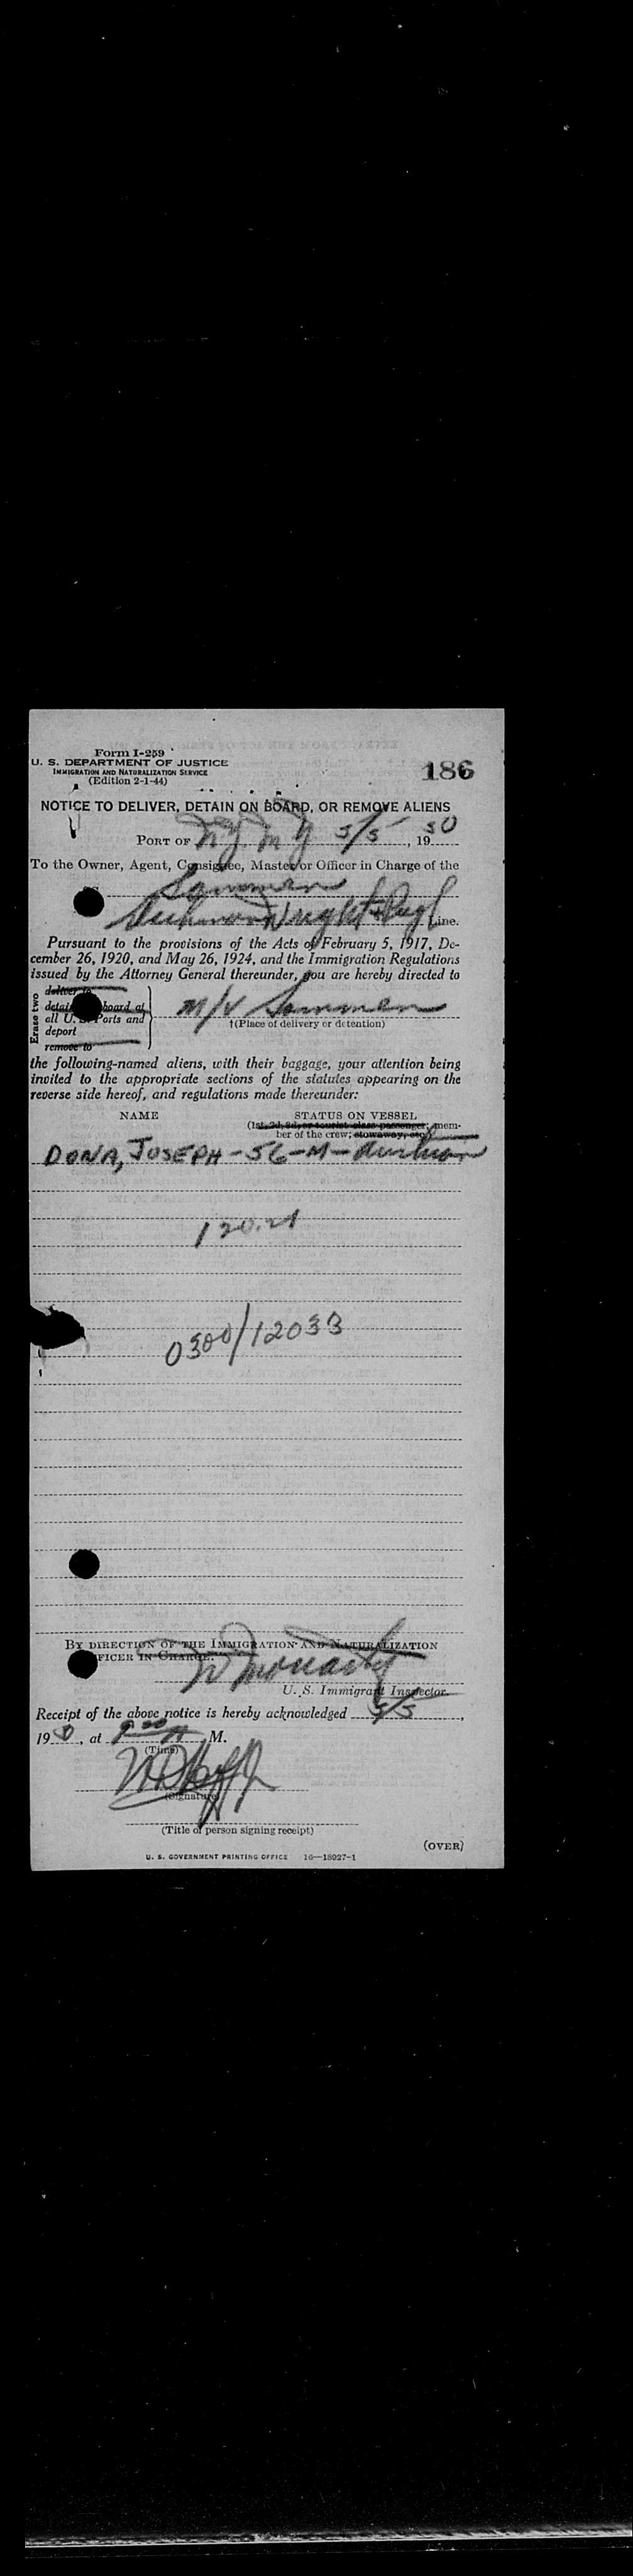 Form I-259
U. S. DEPARTMENT OF JUSTICE
IMMIGRATION AND NATURALIZATION SERVICE
(Edition 2-1-44)
186
NOTICE TO DELIVER, DETAIN ON BOARD, OR REMOVE ALIENS
PORT OF N.Y. N.Y. 5/5, 1950
To the Owner, Agent, Consignee, Master or Officer in Charge of the
Sommen
Line.
Pursuant to the provisions of the Acts of February 5, 1917, De-
cember 26, 1920, and May 26, 1924, and the Immigration Regulations
issued by the Attorney General thereunder, you are hereby directed to
Erase two
deliver to
detain on board at
all U. S. Ports and
deport
remove to
M/V Sommen
†(Place of delivery or detention)
the following-named aliens, with their baggage, your attention being
invited to the appropriate sections of the statutes appearing on the
reverse side hereof, and regulations made thereunder:
NAME STATUS ON VESSEL
(1st, 2d, 3d, or tourist class passenger; mem-
ber of the crew; stowaway, etc.)
DONA, JOSEPH - 56 - M - Austrian
120.21
0300/12033
BY DIRECTION OF THE IMMIGRATION AND NATURALIZATION
OFFICER IN CHARGE.
U. S. Immigrant Inspector.
Receipt of the above notice is hereby acknowledged 5/5,
1950, at 9 00 A. M.
(Time)
(Signature)
(Title of person signing receipt)
(OVER)
U. S. GOVERNMENT PRINTING OFFICE 16—18927-1